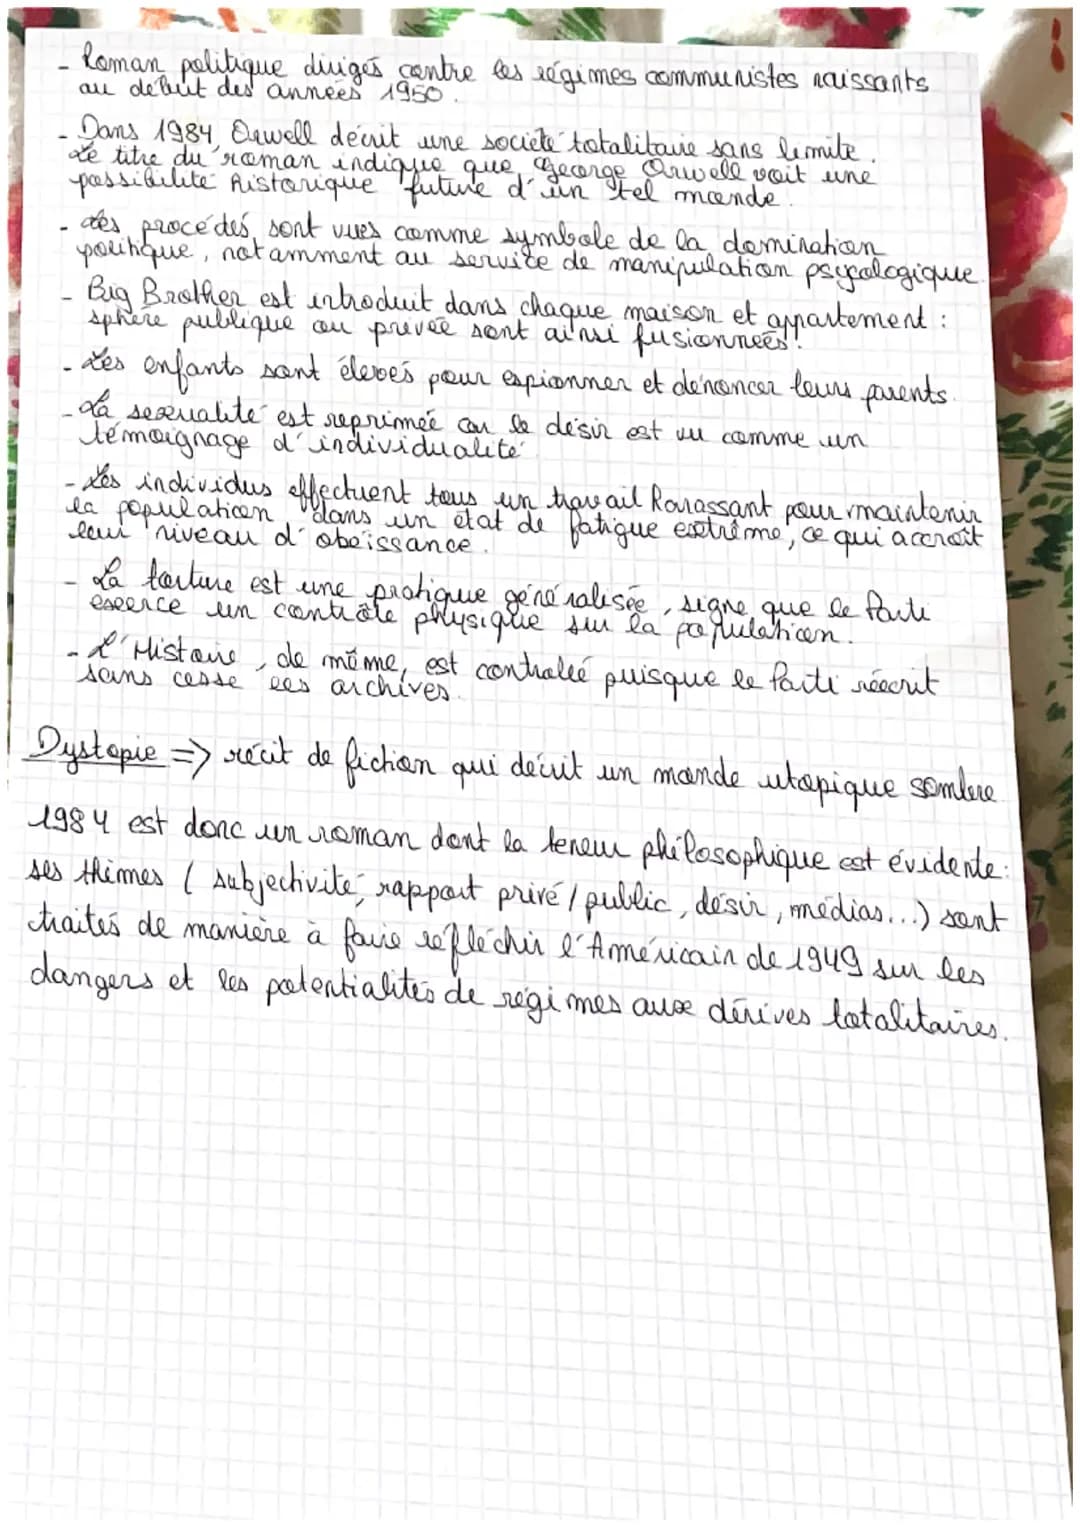 - Roman politique dirigés contre les régimes communistes naissants
au début des années 1950.
- Dans 1984, Orwell décrit une société totalitaire sans limite.
Le titre du roman indique que George Orwell voit une
possibilité historique future d'un tel monde.
- Les procédés sont vues comme symbole de la domination
politique, notamment au service de manipulation psycologique.
- Big Brother est introduit dans chaque maison et appartement :
sphère publique ou privée sont ainsi fusionnées.
- Les enfants sont élevés pour espionner et dénoncer leurs parents.
- La sexualité est reprimée car le désir est vu comme un
témoignage d'individualité
- Les individus effectuent tous un travail harassant pour maintenir
la population dans un état de fatigue extrême, ce qui accroît
leur niveau d'obéissance.
- La torture est une pratique généralisée, signe que le Parti
exerce un contrôle physique sur la population.
- L'Histoire, de même, est controlée puisque le Parti réécrit
sans cesse les archives.
Dystopie => récit de fiction qui décrit un monde utopique sombre
1984 est donc un roman dont la teneur philosophique est évidente:
ses thèmes ( subjectivité, rapport privé / public, désir, médias...) sont
traités de manière à faire réfléchir l'Américain de 1949 sur les
dangers et les potentialités de régimes aux dérives totalitaires.